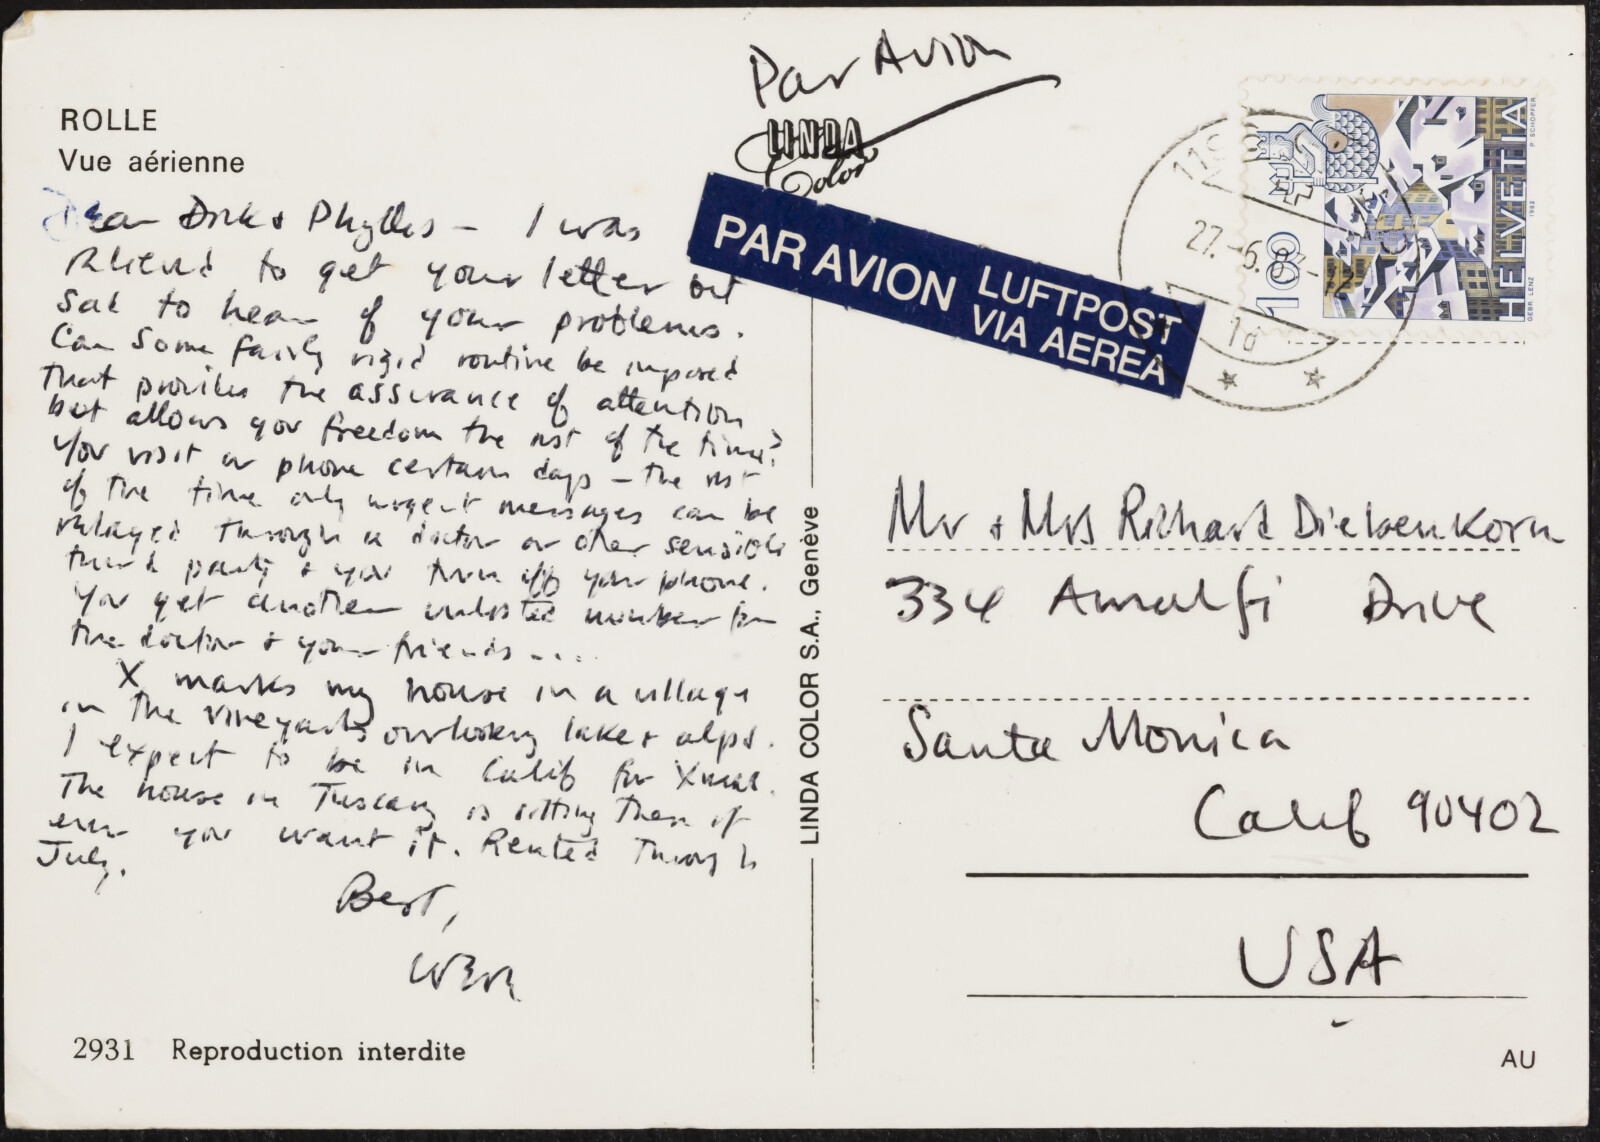 ROLLE
Vue aérienne
Dear Dick & Phyllis — I was
relieved to get your letter but
sad to hear of your problems.
Can some fairly rigid routine be imposed
that provides the assurance of attention
but allows you freedom the rest of the time?
You visit or phone certain days — the rest
of the time only urgent messages can be
relayed through a doctor or other sensible
third party & you turn off your phone.
You get another unlisted number for
the doctor & your friends....
X marks my house in a village
in the vineyards overlooking lake & alps.
I expect to be in Calif for Xmas.
The house in Tuscany is sitting there if
ever you want it. Rented through
July.
Best,
2931 Reproduction interdite
Par Avion
LINDA
Color
PAR AVION LUFTPOST
VIA AEREA
LINDA COLOR S.A., Genève
27.-6.
1d
180
HELVETIA
P. SCHOPFER
1982
GEBR. LENZ
Mr & Mrs Richard Diebenkorn
334 Amalfi Drive
Santa Monica
Calif 90402
USA
AU